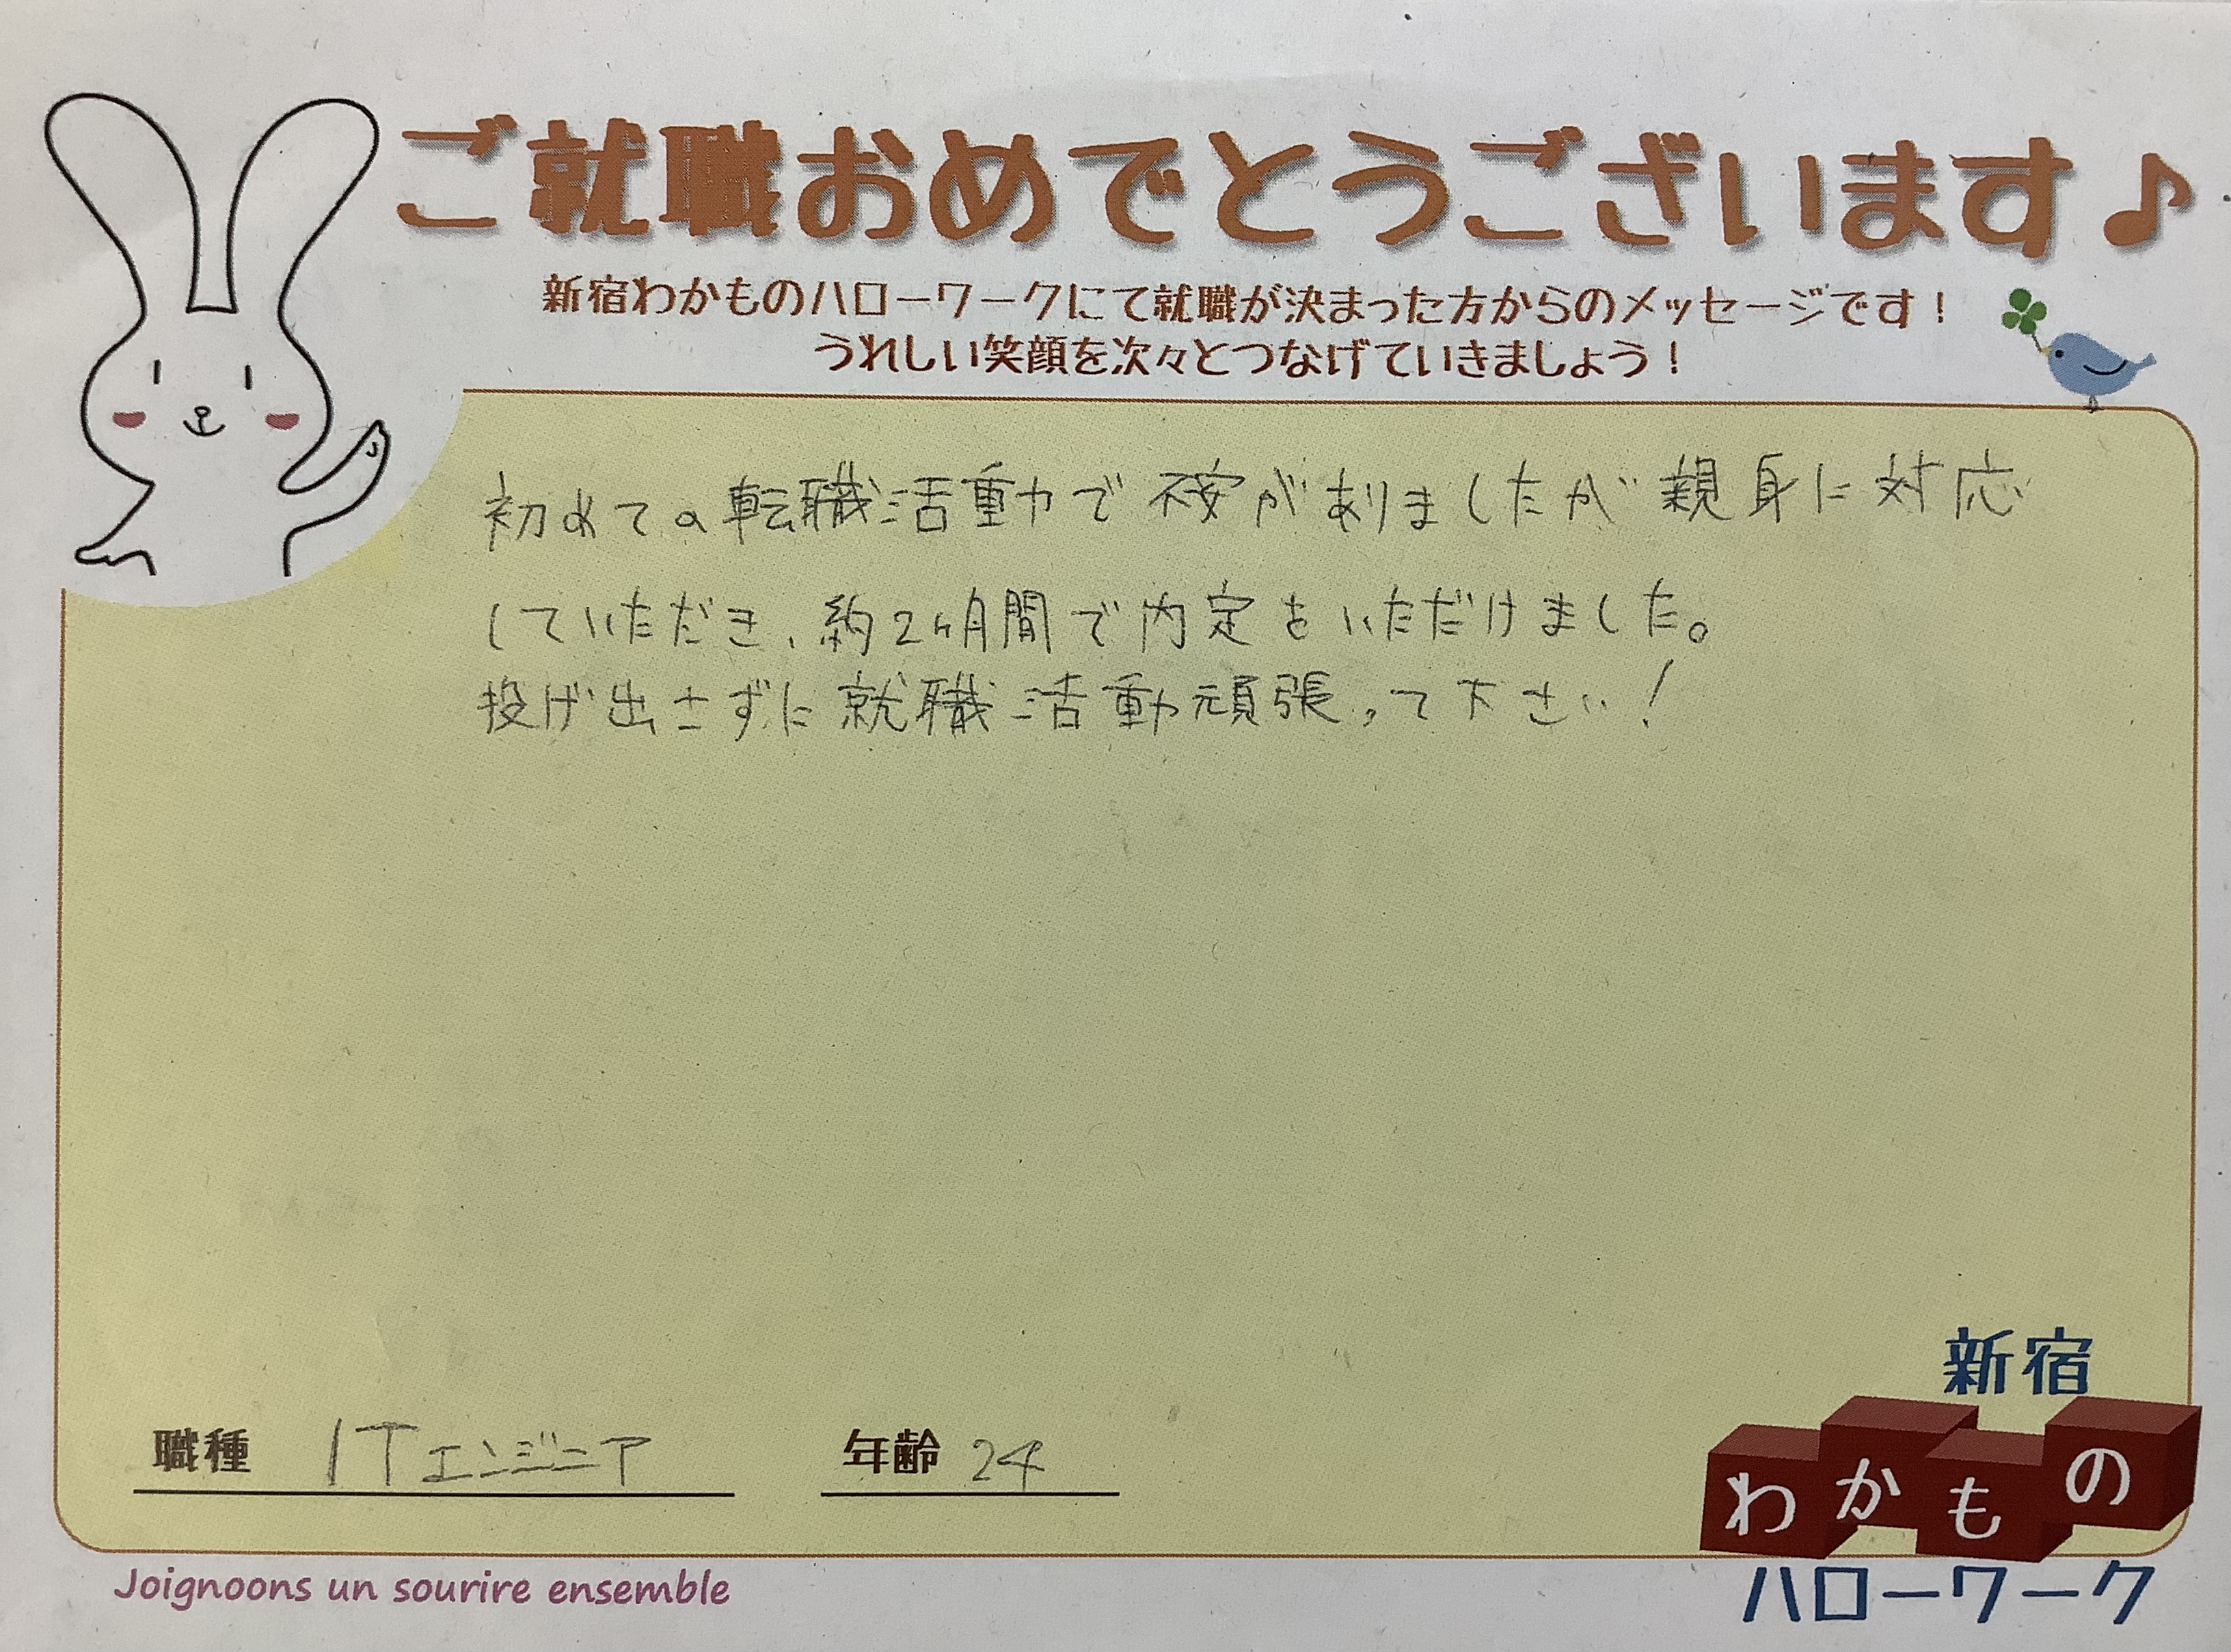 ご就職おめでとうございます♪
新宿わかものハローワークにて就職が決まった方からのメッセージです！
うれしい笑顔を次々とつなげていきましょう！
初めての転職活動で不安がありましたが親身に対応
していただき、約2ヶ月間で内定をいただけました。
投げ出さずに就職活動頑張って下さい！
職種 ITエンジニア 年齢 24
新宿
わかもの
ハローワーク
Joignoons un sourire ensemble